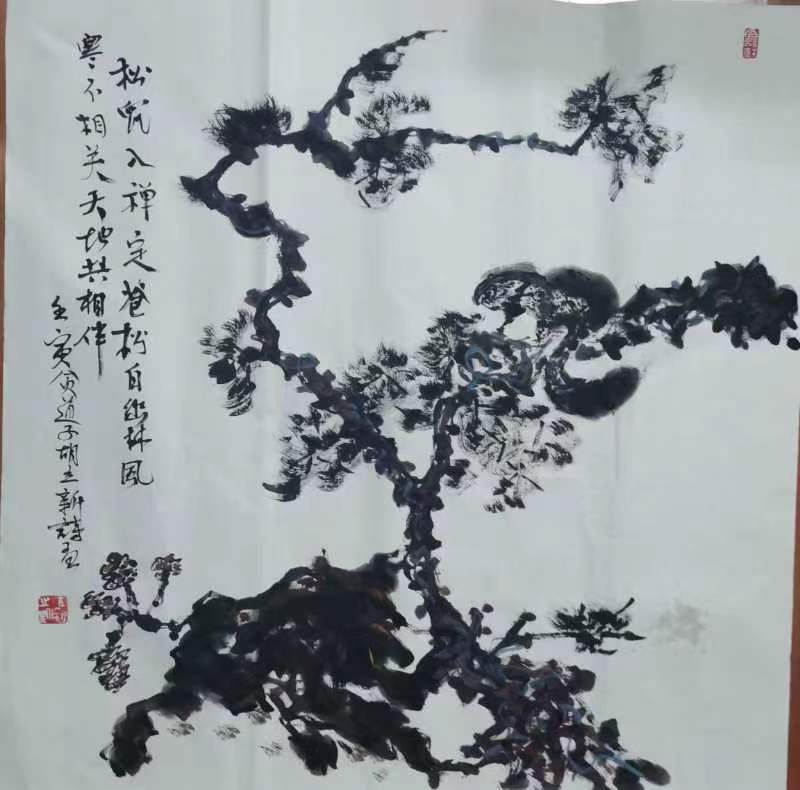 松吼入禅定苍松自幽林风
寒不相关天地共相伴
壬寅贪道子胡之新诗画